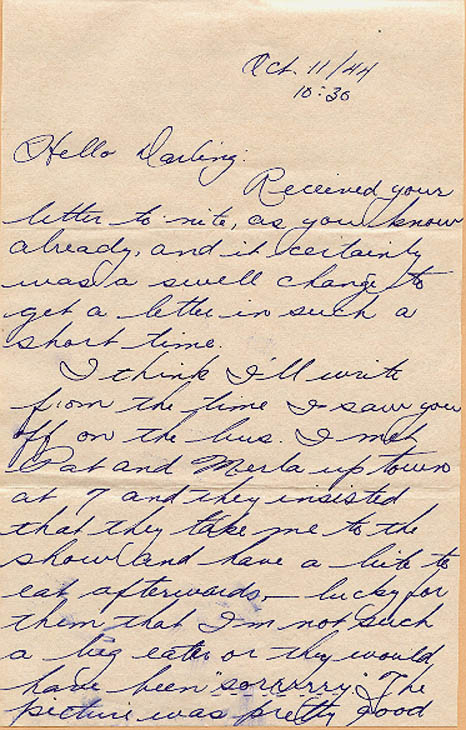 Oct. 11/44
10:30
Hello Darling:
Received your
letter to-nite, as you know
already, and it certainly
was a swell change to
get a letter in such a
short time.
I think I'll write
from the time I saw you
off on the bus. I met
Pat and Merla up town
at 7 and they insisted
that they take me to the
show and have a bite to
eat afterwards, – lucky for
them that I'm not such
a big eater or they would
have been "sorrrry". The
picture was pretty good